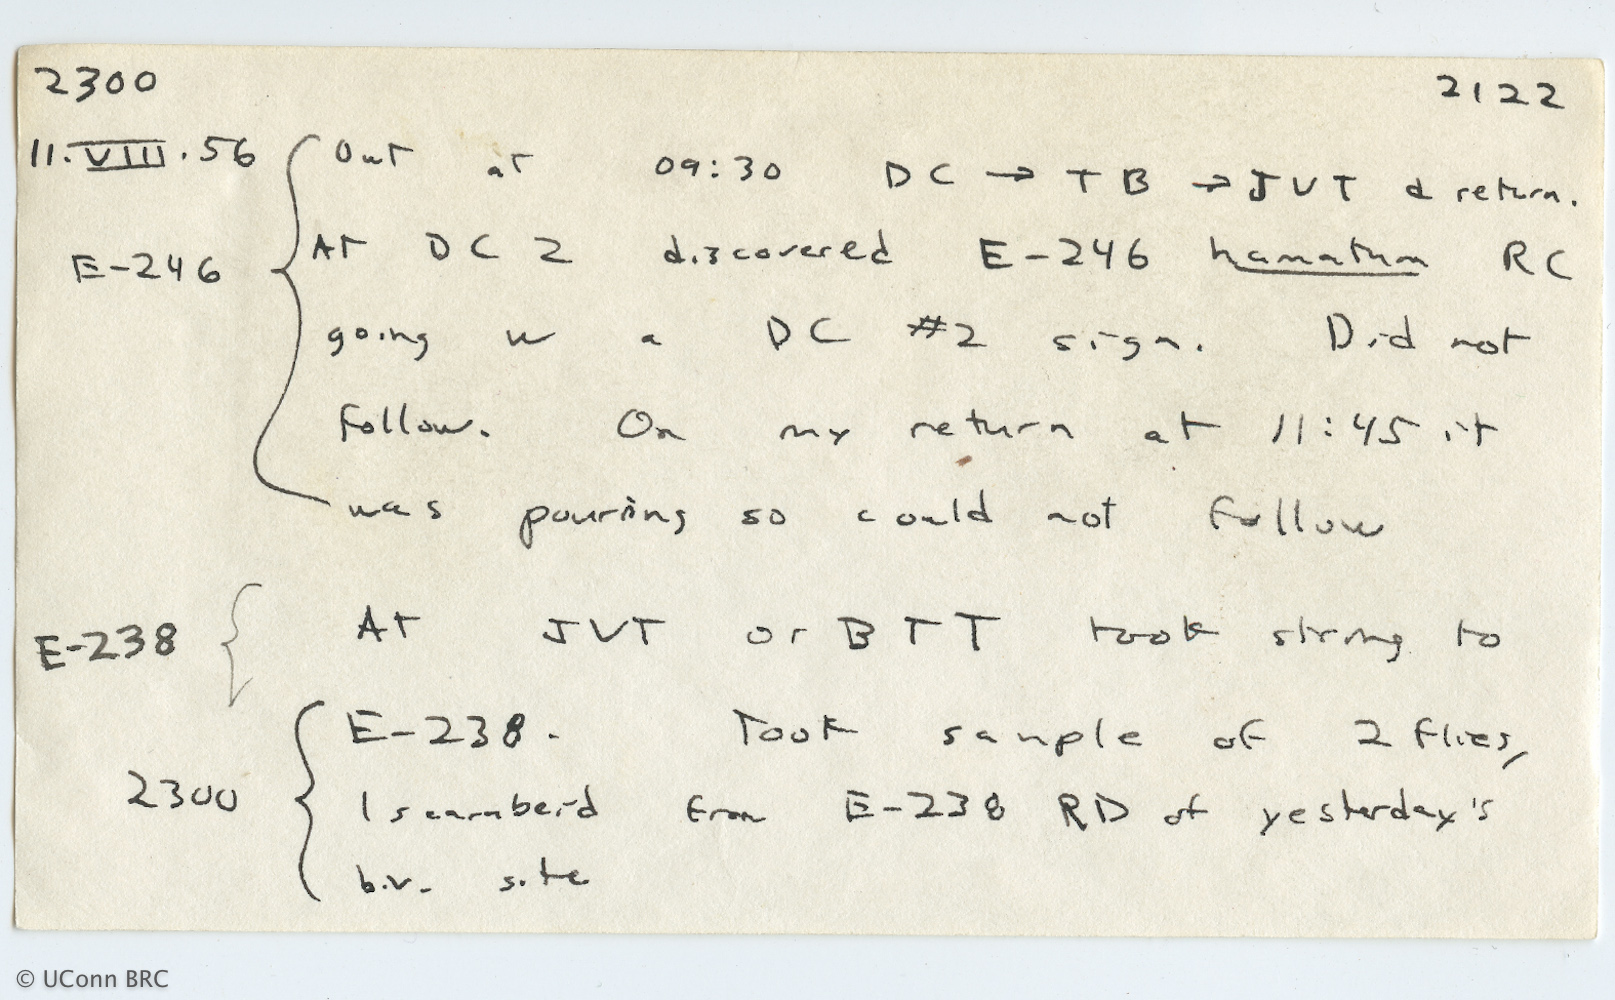 2300 2122
11.VIII.56 Out at 09:30 DC → TB → JVT & return.
E-246 At DC 2 discovered E-246 hamatum RC
going w a DC #2 sign. Did not
follow. On my return at 11:45 it
was pouring so could not follow
E-238 At JVT or BTT took string to
E-238. Took sample of 2 flies,
2300 1 scarabeid from E-238 RD of yesterday's
b.v. site
© UConn BRC